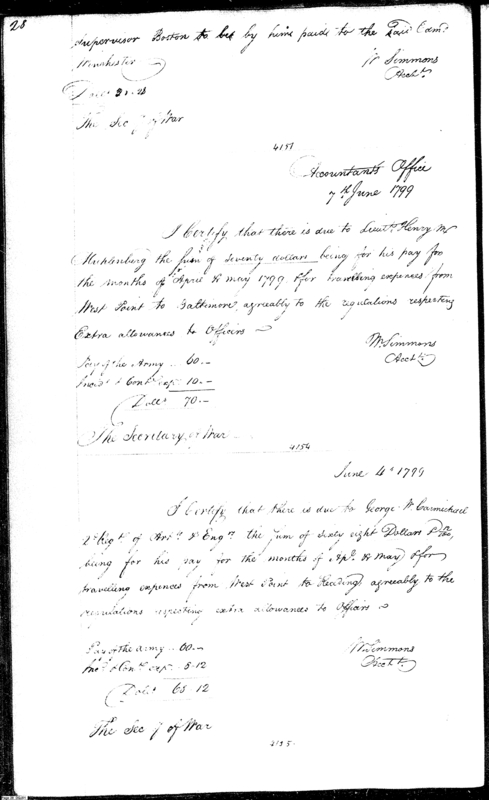 28
Supervisor Boston to be by him paid to the said Cam:
Winchester
W Simmons
Acct.
Dolls 31.28
The Sec y of War
4151
Accountants Office
7th June 1799
I Certify that there is due to Lieut. Henry M
Muhlenberg the sum of seventy dollars being for his pay for
the months of April & may 1799 & for travelling expences from
West Point to Baltimore agreeably to the regulations respecting
Extra allowances to Officers
Pay of the Army .. 60.-
Inci. & Cont. exp. 10.-
Dolls 70.-
W. Simmons
Acct.
The Secretary of War
4154
June 4th 1799
I Certify that there is due to George W Carmichael
2d Regt. of Art. & Engrs. the sum of sixty eight Dollars
being for his pay for the months of Apl. & May & for
travelling expences from West Point to Reading agreeably to the
regulations respecting extra allowances to Officers
Pay of the Army .. 60-
Inci. & Cont. exp. 8.12
Dols. 68.12
W. Simmons
Acct.
The Sec y of War